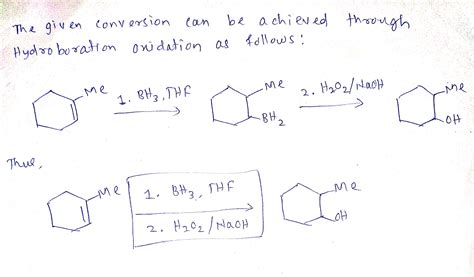 The given conversion can be achieved through
Hydroboration oxidation as follows:
Me 1. BH3, THF Me BH2 2. H2O2/NaOH Me OH
Thus,
Me 1. BH3, THF Me
2. H2O2/NaOH OH